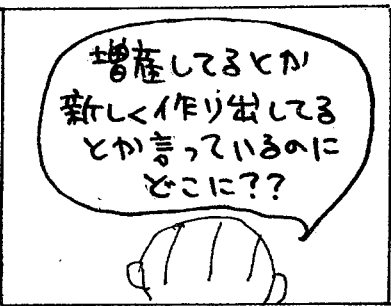 増産してるとか
新しく作り出してる
とか言っているのに
どこに??